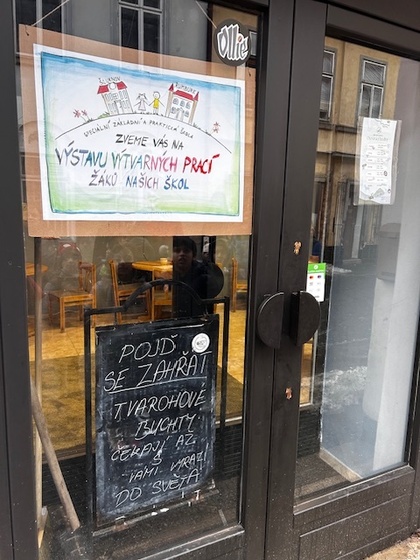 Ollie
RUMBURK
SPECIÁLNÍ ZÁKLADNÍ A PRAKTICKÁ ŠKOLA
ZVEME VÁS NA
VÝSTAVU VÝTVARNÝCH PRACÍ
ŽÁKŮ NAŠICH ŠKOL
POJĎ
SE ZAHŘÁT
TVAROHOVÉ
BUCHTY
ČEKAJÍ AŽ
S
VÁMI VYRAZÍ
DO SVĚTA